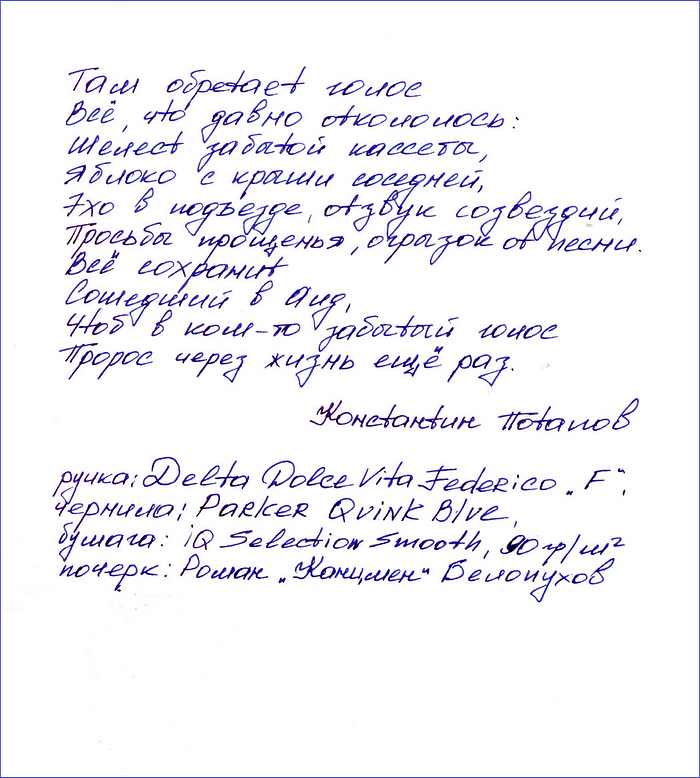 Там обретает голос
Всё, что давно откололось:
Шелест забытой кассеты,
Яблоко с крыши соседней,
Эхо в подъезде, отзвук созвездий,
Просьбы прощенья, огрызок от песни.
Всё сохранит
Сошедший в Аид,
Чтоб в ком-то забытый голос
Пророс через жизнь ещё раз.
Константин Потапов
ручка: Delta Dolce Vita Federico „F“,
чернила: Parker Quink Blue,
бумага: iQ Selection Smooth, 90 гр/м²
почерк: Роман „Канцмен“ Белопухов